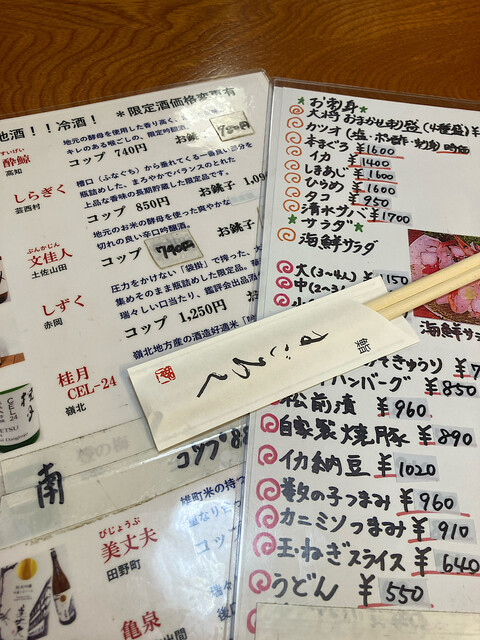 地酒！！冷酒！ ＊限定酒価格変更有
すいげい
酔鯨
高知
地元の酵母を使用した香り高く、
キレのある喉ごしの、限定吟醸
コップ 740円 お銚子
しらぎく
芸西村
槽口（ふなぐち）から垂れてくる一番良い部分を
瓶詰めした、まろやかでバランスのとれた
上品な香味の長期貯蔵した限定品です。
コップ 850円 お銚子 1,09
ぶんかじん
文佳人
土佐山田
地元のお米の酵母を使った爽やかな
切れの良い辛口吟醸酒。
コップ お銚子
しずく
赤岡
圧力をかけない「袋掛」で搾った、大
集めそのまま瓶詰めした限定品。華
瑞々しい口当たり、鑑評会出品酒
コップ 1,250円 お
桂月
CEL-24
嶺北
嶺北地方産の酒造好適米「吟
南
雄町米の持つ
コップ
びじょうふ
美丈夫
田野町
亀泉
出間
鮨
すごろく
お刺身
大将おまかせ刺盛(4種盛)¥
カツオ (塩・ポン酢・刺身) 時価
本まぐろ ¥1600
イカ ¥1400
しまあじ ¥1600
ひらめ ¥1600
タコ ¥950
清水サバ ¥1700
サラダ
海鮮サラダ
大(3〜4人) ¥1150
中(2〜3
海鮮サラダ
きゅうり ¥7
ハンバーグ ¥850
松前漬 ¥960
自家製焼豚 ¥890
イカ納豆 ¥1020
数の子つまみ ¥960
カニミソつまみ ¥910
玉ねぎスライス ¥640
うどん ¥550